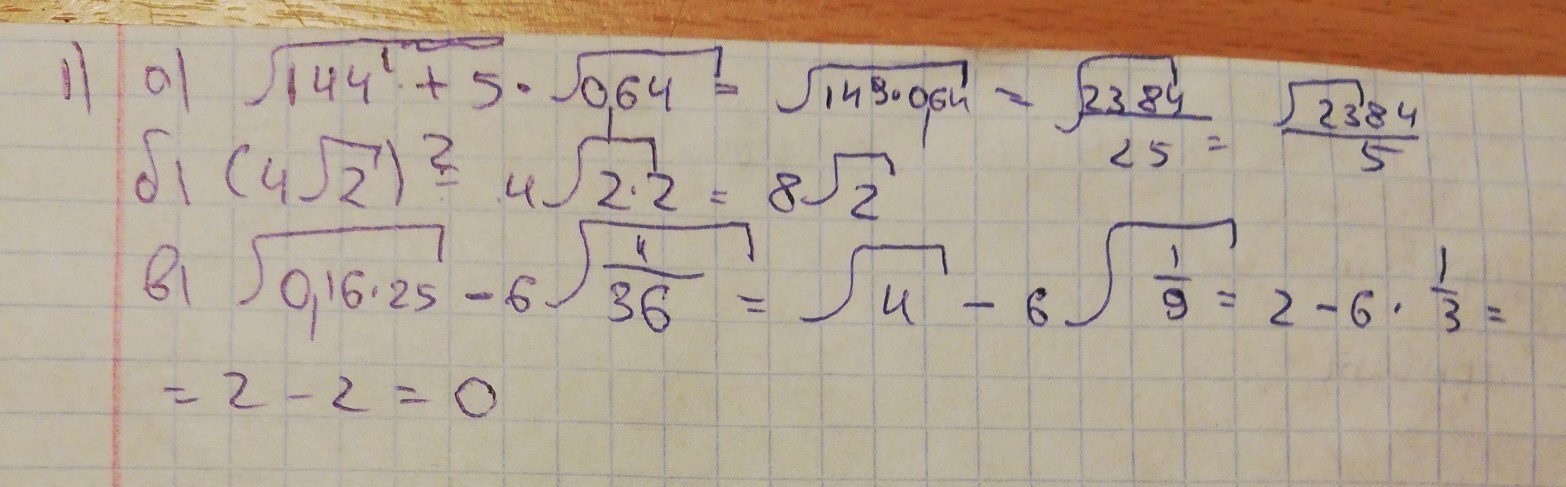 1) а) √144 + 5 · √0,64 = √149·0,64 = √2384/25 = √2384/5
б) (4√2)² = 4√2·2 = 8√2
в) √0,16·25 - 6√4/36 = √4 - 6√1/9 = 2 - 6 · 1/3 =
= 2 - 2 = 0